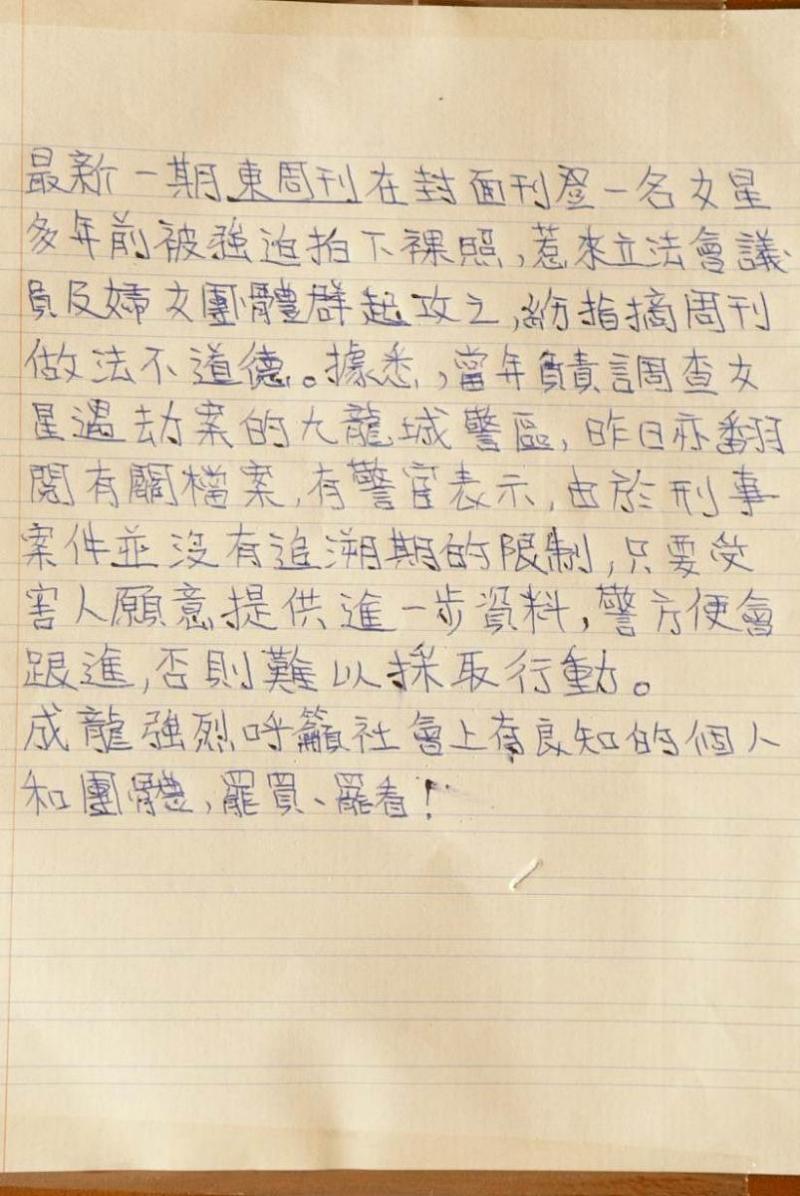 最新一期東周刊在封面刊登一名女星
多年前被強迫拍下裸照,惹來立法會議
員及婦女團體群起攻之,紛指摘周刊
做法不道德。據悉,當年負責調查女
星遇劫案的九龍城警區,昨日亦翻
閱有關檔案,有警官表示,由於刑事
案件並沒有追溯期的限制,只要受
害人願意提供進一步資料,警方便會
跟進,否則難以採取行動。
成龍強烈呼籲社會上有良知的個人
和團體,罷買、罷看!